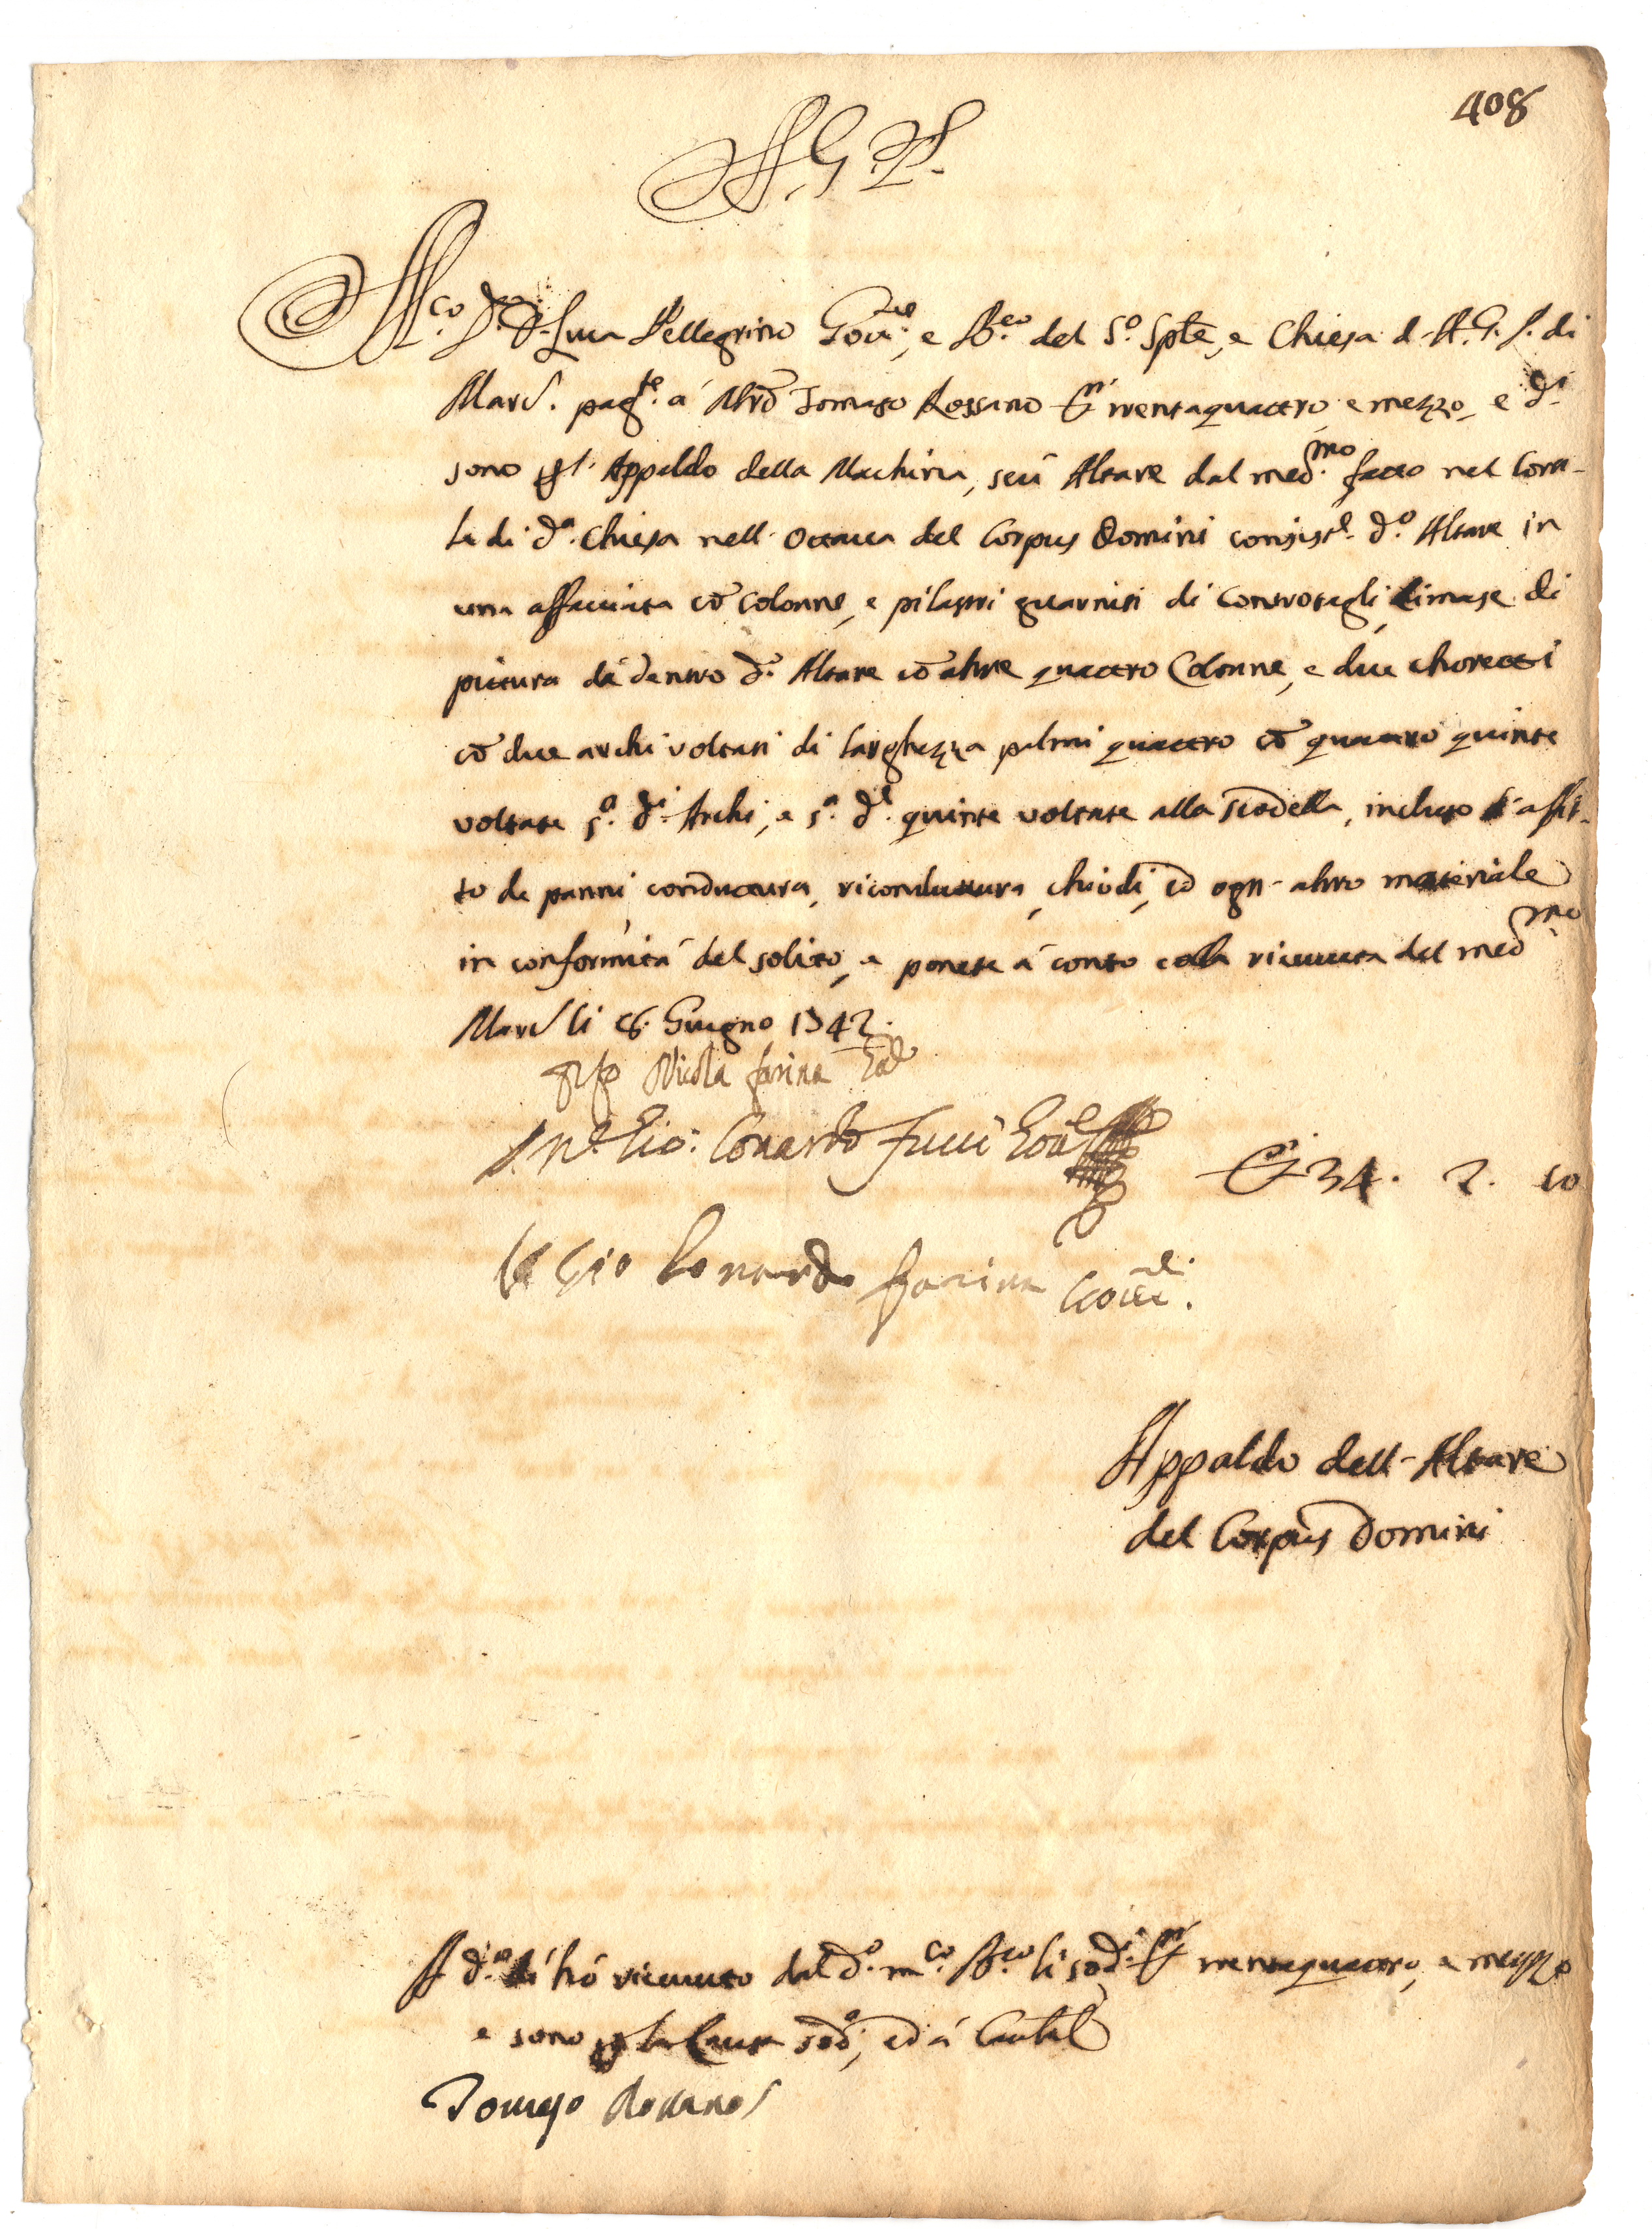 408
A. G. P.
M.co D.r D. Luca Pellegrino Gov.re, e B.co del S.o Sple, e Chiesa d. A. G. P. di
Marc. pag.te á Mro Tomaso Rossano trentaquattro, e mezzo, e d.i
sono p l'Appaldo della Machina, seú Altare dal med.mo fatto nel Corti-
le di d.a Chiesa nell'Ottava del Corpus Domini consist.e d.o Altare in
una affacciata cō Colonne, e pilastri guarniti di Controtagli, e image di
pittura dá dentro d.o Altare cō altre quattro Colonne, e due choretti
cō due archi voltati di larghezza palmi quattro cō quattro quinte
voltate s.a d.i Archi, e s.a d.e quinte voltate alla scodella, incluso l'affit-
to di panni, conduttura, ricondutura, chiodi, ed ogn'altro materiale
in conformitá del solito, e ponete á conto colla ricevuta del med.mo
Marc li 6 Giugno 1742.
Nicola farina
Gio: Conardo Fucci Gov.e
34. 2. 10
Gio Lonardo farina Gov.e
Appaldo dell'Altare
del Corpus Domini
A d.o dí hó ricevuto dal d.o m.co B.co li sod.i trentaquattro, e mezzo
e sono p la Causa sod.a, ed á Cautel
Tomaso Rossano